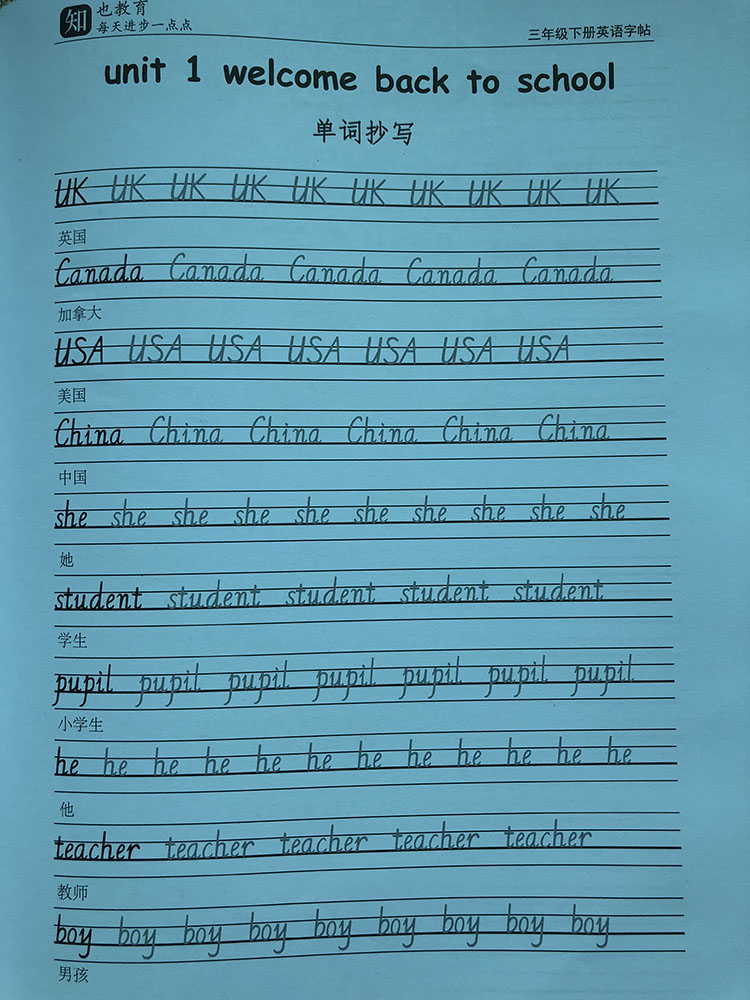 知 也教育
每天进步一点点
三年级下册英语字帖
unit 1 welcome back to school
单词抄写
UK UK UK UK UK UK UK UK UK UK
英国
Canada Canada Canada Canada Canada
加拿大
USA USA USA USA USA USA USA
美国
China China China China China China
中国
she she she she she she she she she she
她
student student student student student
学生
pupil pupil pupil pupil pupil pupil pupil
小学生
he he he he he he he he he he he he
他
teacher teacher teacher teacher teacher
教师
boy boy boy boy boy boy boy boy boy
男孩